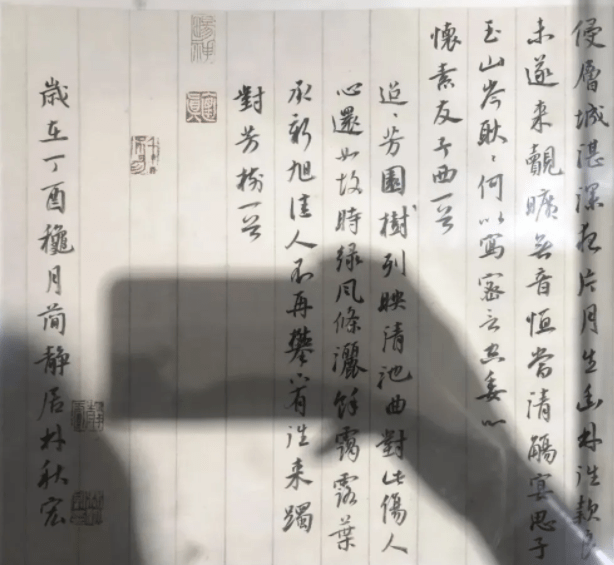 侵層城湛深夜片月生幽林往款良
未遂来覿曠無音恒當清觴宴思子
玉山岑耿〻何以寫密言空委心
懷素友子西一首
迢〻芳園樹列映清池曲對此傷人
心還如故時緑風條灑餘靄露葉
承新旭佳人不再攀下有往来躅
對芳樹一首
歲在丁酉穐月简静居林秋宏